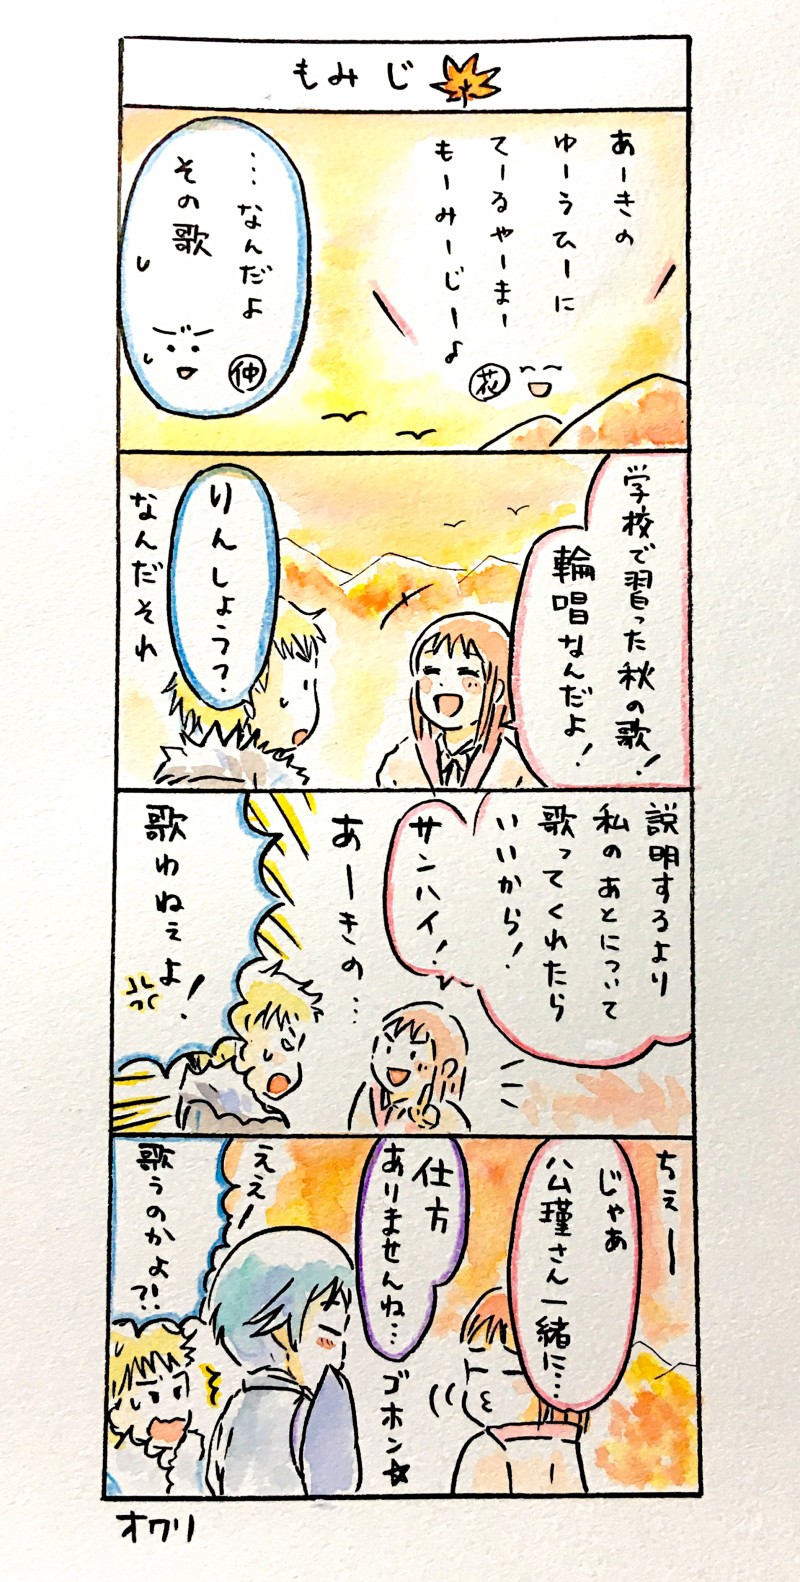 もみじ
あーきの
ゆーうひーに
てーるやーまー
もーみーじーよ
花
…なんだよ
その歌
仲
学校で習った秋の歌！
輪唱なんだよ！
りんしょう？
なんだそれ
説明するより
私のあとについて
歌ってくれたら
いいから！
サンハイ！
あーきの…
歌わねぇよ！
ちぇー
じゃあ
公瑾さん一緒に…
仕方
ありませんね…
ゴホン☆
ええー
歌うのかよ?!
オワリ